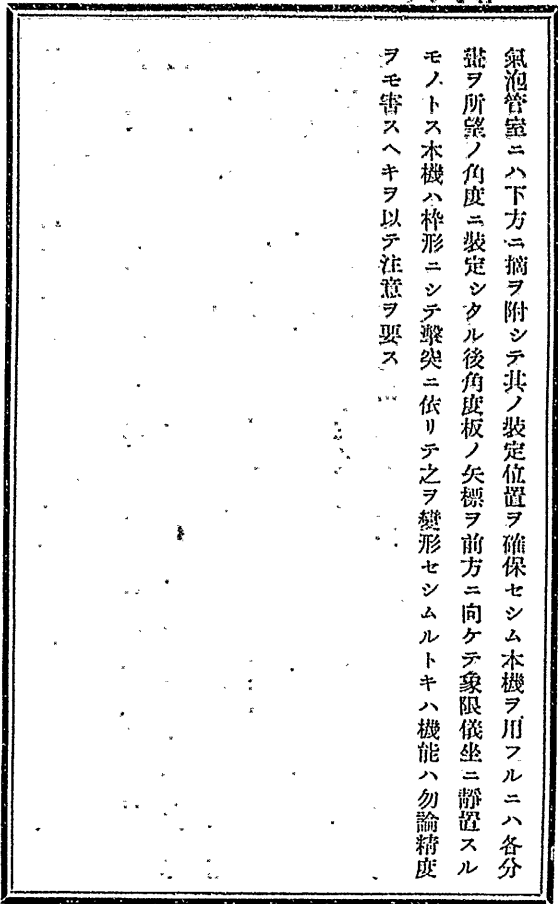 氣泡管室ニハ下方ニ摘ヲ附シテ其ノ裝定位置ヲ確保セシム本機ヲ用フルニハ各分
畫ヲ所望ノ角度ニ裝定シタル後角度板ノ矢標ヲ前方ニ向ケテ象限儀坐ニ靜置スル
モノトス本機ハ枠形ニシテ擊突ニ依リテ之ヲ變形セシムルトキハ機能ハ勿論精度
ヲモ害スヘキヲ以テ注意ヲ要ス